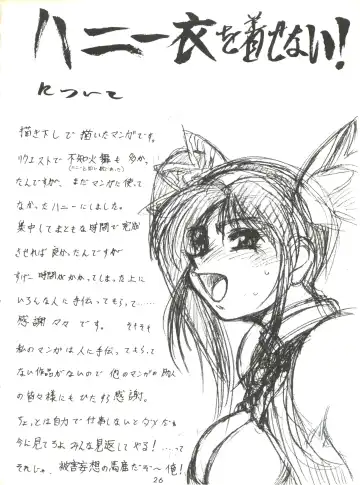 ハニー衣を着せない!
について
描き下しで描いたマンガです。
リクエストで不知火舞も多か
たんですが、まだマンガに使って
なかったハニーにしました。
集中してまともな時間で完成
させれば良かったんですが
すげー時間がかかってしまった上に
いろんな人に手伝ってもらって……
感謝々々です。
私のマンガは人に手伝ってもらって
ない作品がないので他のマンガの
の皆々様にもひたすら感謝。
ちょっとは自力で仕事しないとダメだな
今に見てろよみんな見返してやる!……って
それじゃ、被害妄想の
俺!
26